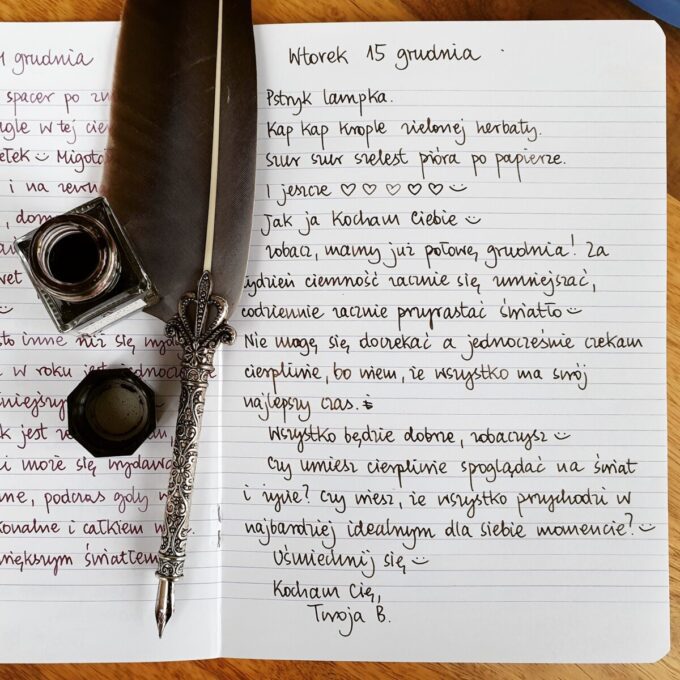 grudnia
spacer po
w tej
Migot
i na zewn
inne niż się wyda
w roku jest jednocze
jest
może się wydawa
podczas gdy w
i całkiem
światłem
Wtorek 15 grudnia
Pstryk lampka.
Kap kap krople zielonej herbaty.
Szur szur szelest pióra po papierze.
I jeszcze ♡ ♡ ♡ ♡ ♡ ☺
Jak ja Kocham Ciebie ☺
Zobacz, mamy już połowę grudnia! Za
tydzień ciemność zacznie się umniejszać,
codziennie zacznie przyrastać światło ☺
Nie mogę się doczekać a jednocześnie czekam
cierpliwie, bo wiem, że wszystko ma swój
najlepszy czas.
Wszystko będzie dobrze, zobaczysz ☺
Czy umiesz cierpliwie spoglądać na świat
i życie? Czy wiesz, że wszystko przychodzi w
najbardziej idealnym dla siebie momencie? ☺
Uśmiechnij się ☺
Kocham Cię,
Twoja B.